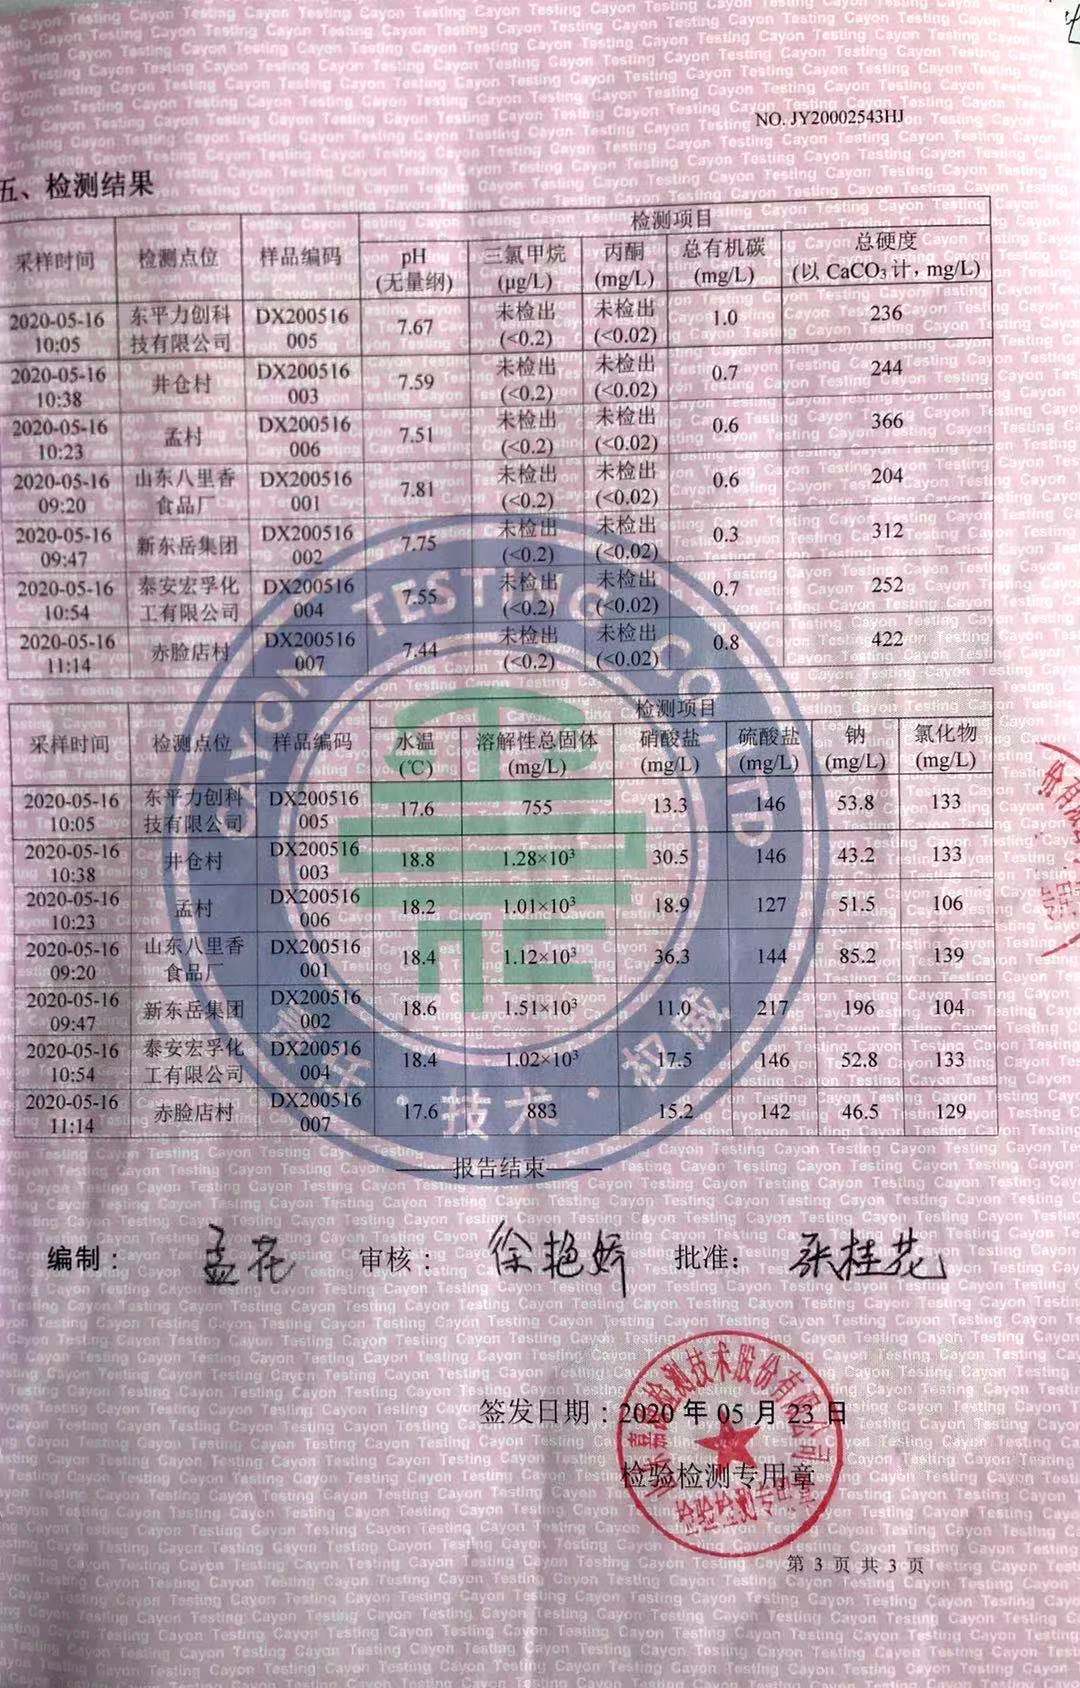 NO. JY20002543HJ
五、检测结果
采样时间 检测点位 样品编码 检测项目
pH (无量纲) 三氯甲烷 (μg/L) 丙酮 (mg/L) 总有机碳 (mg/L) 总硬度 (以 CaCO₃ 计，mg/L)
2020-05-16 10:05 东平力创科技有限公司 DX200516005 7.67 未检出 (<0.2) 未检出 (<0.02) 1.0 236
2020-05-16 10:38 井仓村 DX200516003 7.59 未检出 (<0.2) 未检出 (<0.02) 0.7 244
2020-05-16 10:23 孟村 DX200516006 7.51 未检出 (<0.2) 未检出 (<0.02) 0.6 366
2020-05-16 09:20 山东八里香食品厂 DX200516001 7.81 未检出 (<0.2) 未检出 (<0.02) 0.6 204
2020-05-16 09:47 新东岳集团 DX200516002 7.75 未检出 (<0.2) 未检出 (<0.02) 0.3 312
2020-05-16 10:54 泰安宏孚化工有限公司 DX200516004 7.55 未检出 (<0.2) 未检出 (<0.02) 0.7 252
2020-05-16 11:14 赤脸店村 DX200516007 7.44 未检出 (<0.2) 未检出 (<0.02) 0.8 422
采样时间 检测点位 样品编码 检测项目
水温 (℃) 溶解性总固体 (mg/L) 硝酸盐 (mg/L) 硫酸盐 (mg/L) 钠 (mg/L) 氯化物 (mg/L)
2020-05-16 10:05 东平力创科技有限公司 DX200516005 17.6 755 13.3 146 53.8 133
2020-05-16 10:38 井仓村 DX200516003 18.8 1.28×10³ 30.5 146 43.2 133
2020-05-16 10:23 孟村 DX200516006 18.2 1.01×10³ 18.9 127 51.5 106
2020-05-16 09:20 山东八里香食品厂 DX200516001 18.4 1.12×10³ 36.3 144 85.2 139
2020-05-16 09:47 新东岳集团 DX200516002 18.6 1.51×10³ 11.0 217 196 104
2020-05-16 10:54 泰安宏孚化工有限公司 DX200516004 18.4 1.02×10³ 17.5 146 52.8 133
2020-05-16 11:14 赤脸店村 DX200516007 17.6 883 15.2 142 46.5 129
CAYON TESTING CO., LTD
技术·权威
——报告结束——
编制： 孟花 审核： 徐艳娇 批准： 张桂花
签发日期：2020 年 05 月 23 日
检验检测专用章
检测技术股份有限公司
检验检测专用章
第 3 页 共 3 页
Cayon Testing